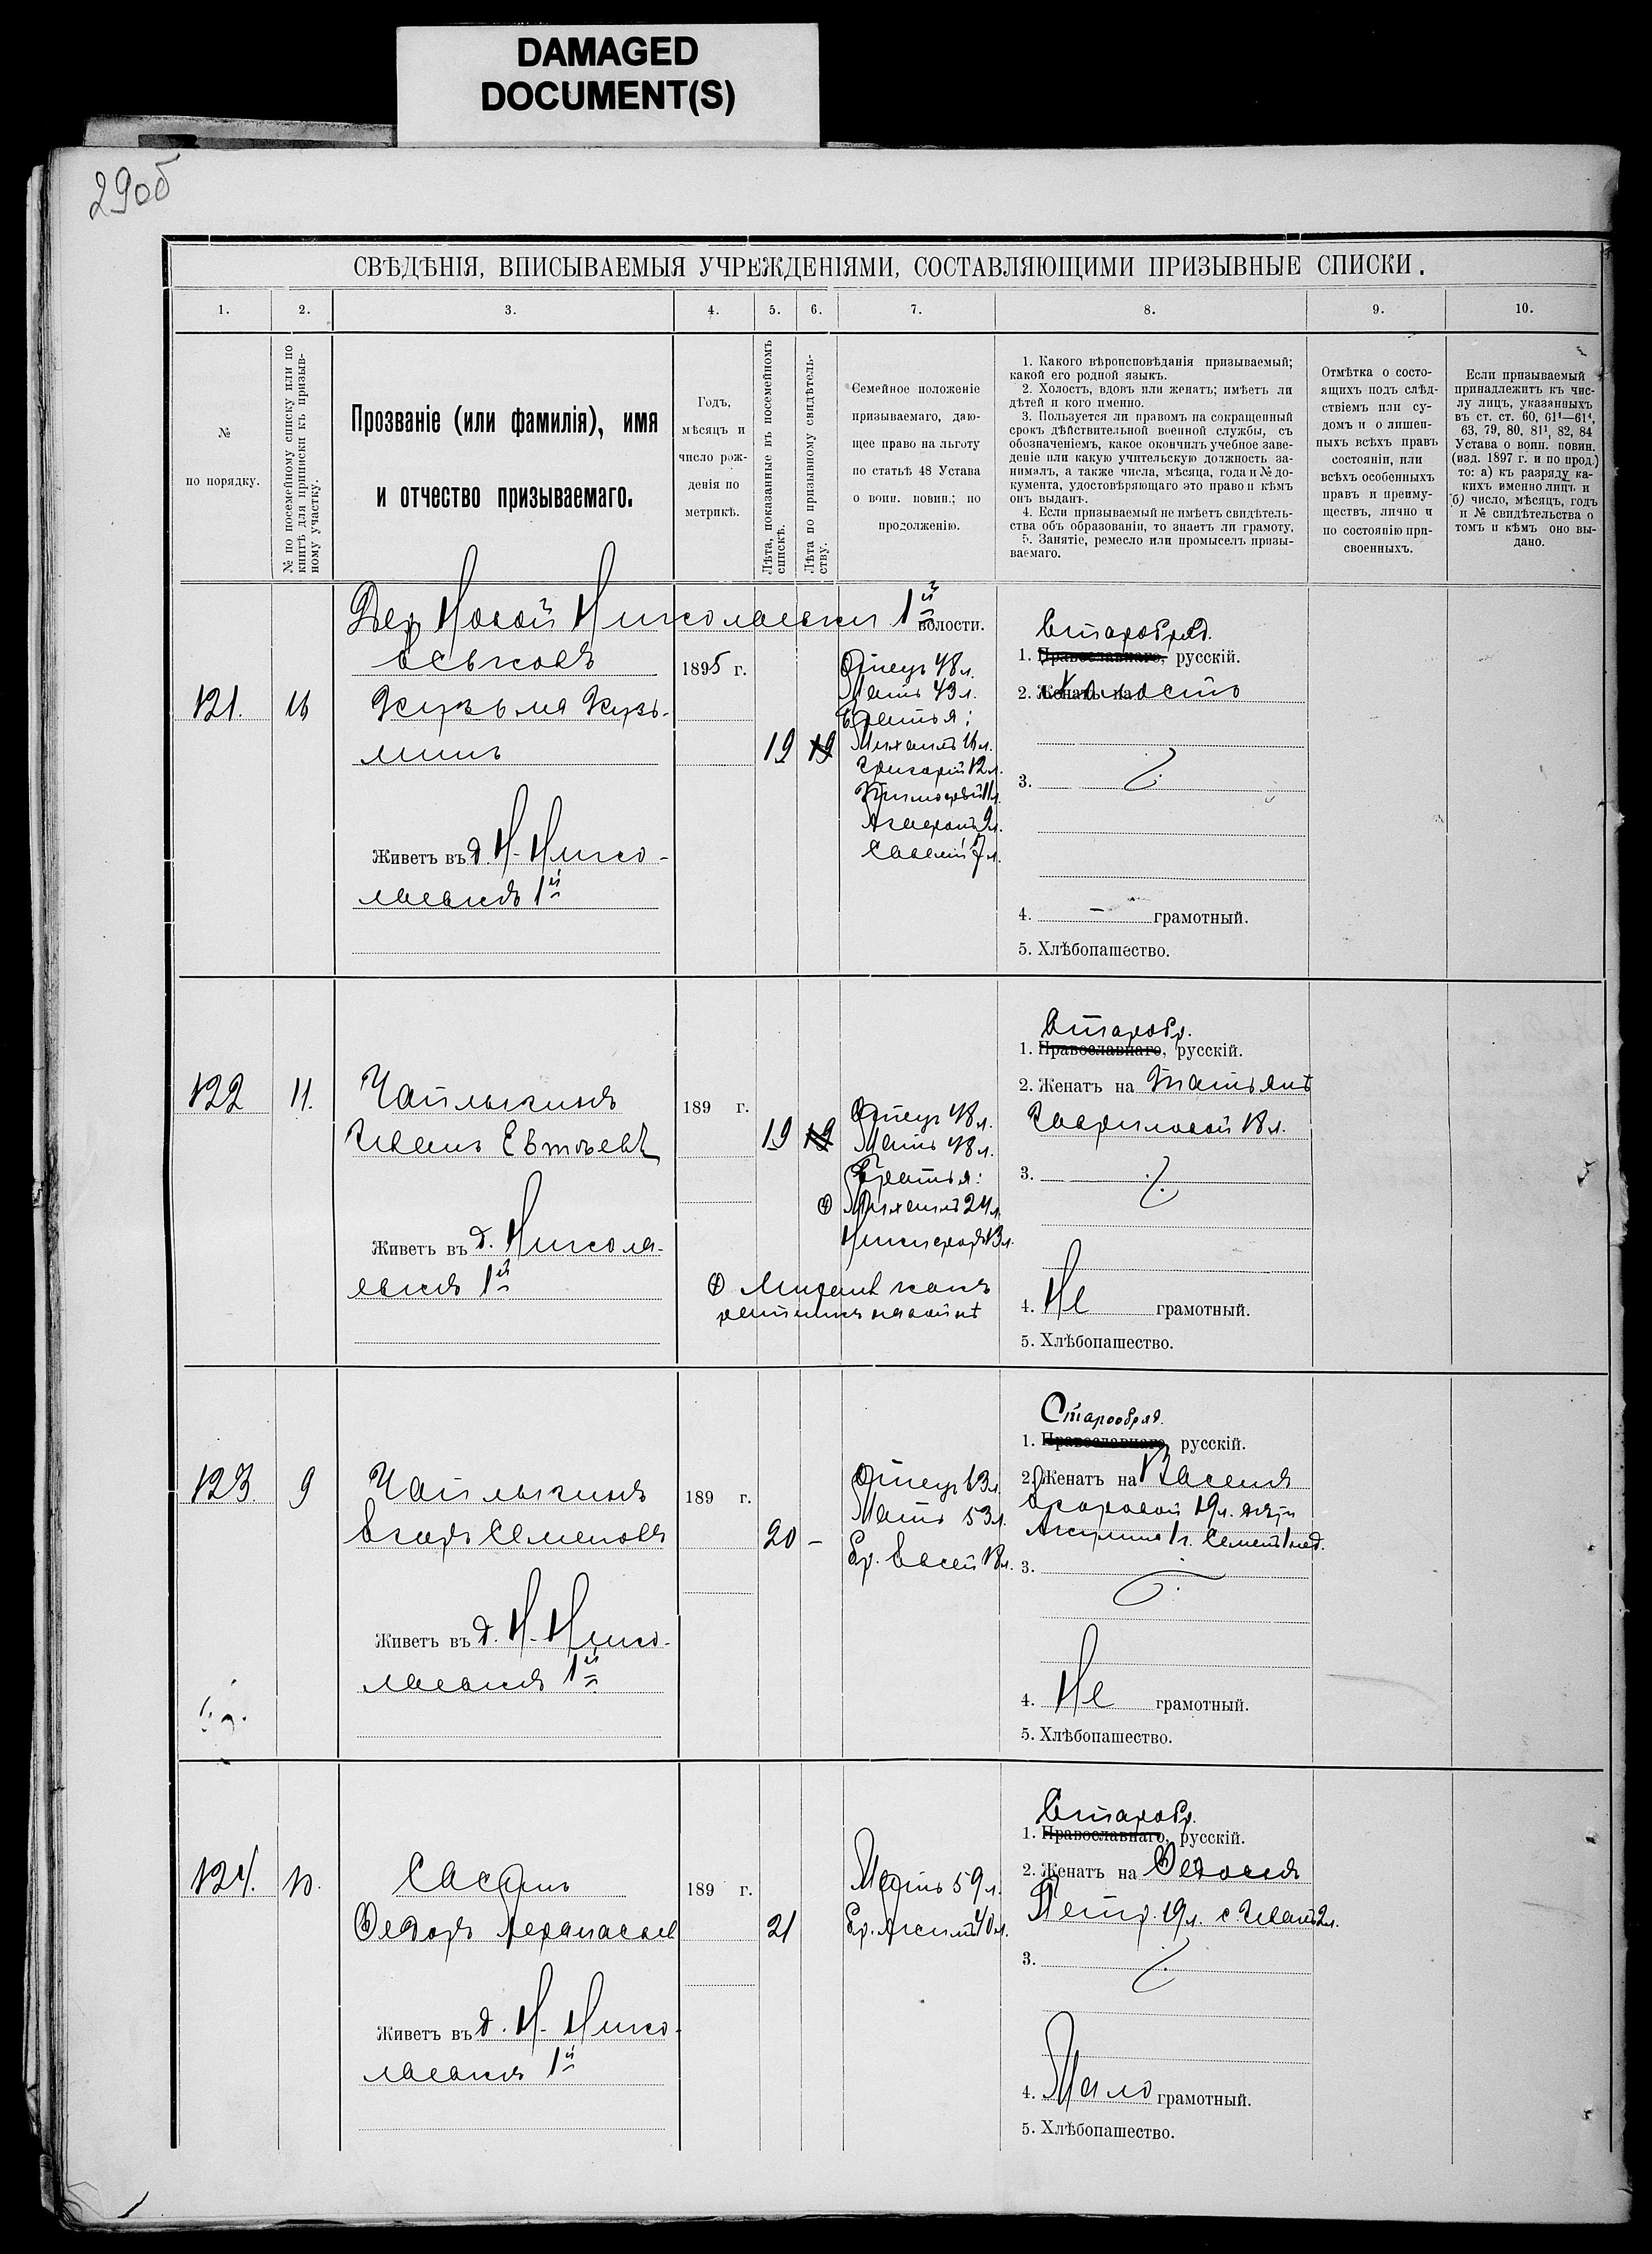 DAMAGED
DOCUMENT(S)
29об
СВѢДѢНІЯ, ВПИСЫВАЕМЫЯ УЧРЕЖДЕНІЯМИ, СОСТАВЛЯЮЩИМИ ПРИЗЫВНЫЕ СПИСКИ.
1. 2. 3. 4. 5. 6. 7. 8. 9. 10.
№
по порядку.
№ по посемейному списку или по
книгѣ для приписки къ призыв-
ному участку.
Прозваніе (или фамилія), имя
и отчество призываемаго.
Годъ,
мѣсяцъ и
число рож-
денія по
метрикѣ.
Лѣта, показанные въ посемейномъ
спискѣ.
Лѣта по призывному свидѣтель-
ству.
Семейное положеніе
призываемаго, даю-
щее право на льготу
по статьѣ 48 Устава
о воин. повин.; по
продолженію.
1. Какого вѣроисповѣданія призываемый;
какой его родной языкъ.
2. Холостъ, вдовъ или женатъ; имѣетъ ли
дѣтей и кого именно.
3. Пользуется ли правомъ на сокращенный
срокъ дѣйствительной военной службы, съ
обозначеніемъ, какое окончилъ учебное заве-
деніе или какую учительскую должность за-
нималъ, а также числа, мѣсяца, года и № до-
кумента, удостовѣряющаго это право и кѣмъ
онъ выданъ.
4. Если призываемый не имѣетъ свидѣтель-
ства объ образованіи, то знаетъ ли грамоту.
5. Занятіе, ремесло или промыселъ призы-
ваемаго.
Отмѣтка о состо-
ящихъ подъ слѣд-
ствіемъ или су-
домъ и о лишен-
ныхъ всѣхъ правъ
состоянія, или
всѣхъ особенныхъ
правъ и преиму-
ществъ, лично и
по состоянію при-
своенныхъ.
Если призываемый
принадлежитъ къ чис-
лу лицъ, указанныхъ
въ ст. ст. 60, 61¹—61⁴,
63, 79, 80, 81¹, 82, 84
Устава о воин. повин.
(изд. 1897 г. и по прод.)
то: а) къ разряду ка-
кихъ именно лицъ и
б) число, мѣсяцъ, годъ
и № свидѣтельства о
томъ и кѣмъ оно вы-
дано.
Дер Новой Николаевки 1й волости.
121.
Кузьма Кузь-
минъ
Живетъ въ д. Н. Нико-
лаевкѣ 1й
1895 г.
19 19
Отецъ 48 л.
Мать 43 л.
Братья:
Михаилъ 16 л.
Григорій 12 л.
Тимофей 11 л.
Агафонъ 9 л.
Савелій 7 л.
Старобряд.
1. Православнаго, русскій.
2. Женатъ на Холостъ
3.
4. – грамотный.
5. Хлѣбопашество.
122 11.
Чаплыгинъ
Иванъ Евтѣевъ
Живетъ въ д. Никола-
евкѣ 1й
189 г.
19 19
Отецъ 48 л.
Мать 48 л.
Братья:
Михаилъ 24 л.
Никифоръ 13 л.
Старобр.
1. Православнаго, русскій.
2. Женатъ на Татьянѣ
Гавриловой 18 л.
3.
4. Не грамотный.
5. Хлѣбопашество.
123 9
Чаплыгинъ
Егоръ Семеновъ
Живетъ въ д. Н. Нико-
лаевкѣ 1й
189 г.
20 –
Мать 53 л.
Старообряд.
1. Православнаго, русскій.
2. Женатъ на
19 л. дѣти
3.
4. Не грамотный.
5. Хлѣбопашество.
124. 10.
Федоръ Афанасьев
Живетъ въ д. Н. Нико-
лаевкѣ 1й
189 г.
21
Мать 59 л.
Старобр.
1. Православнаго, русскій.
2. Женатъ на Федосьѣ
Петр. 19 л. с. Иванъ 2 л.
3.
4. Мало грамотный.
5. Хлѣбопашество.